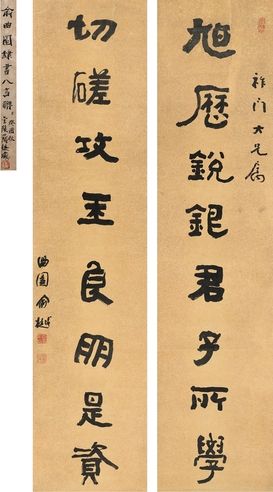 俞曲園隸書八言聯
祚門大兄属
旭曆銳君子所學
切磋攻玉良朋是資
曲園俞樾